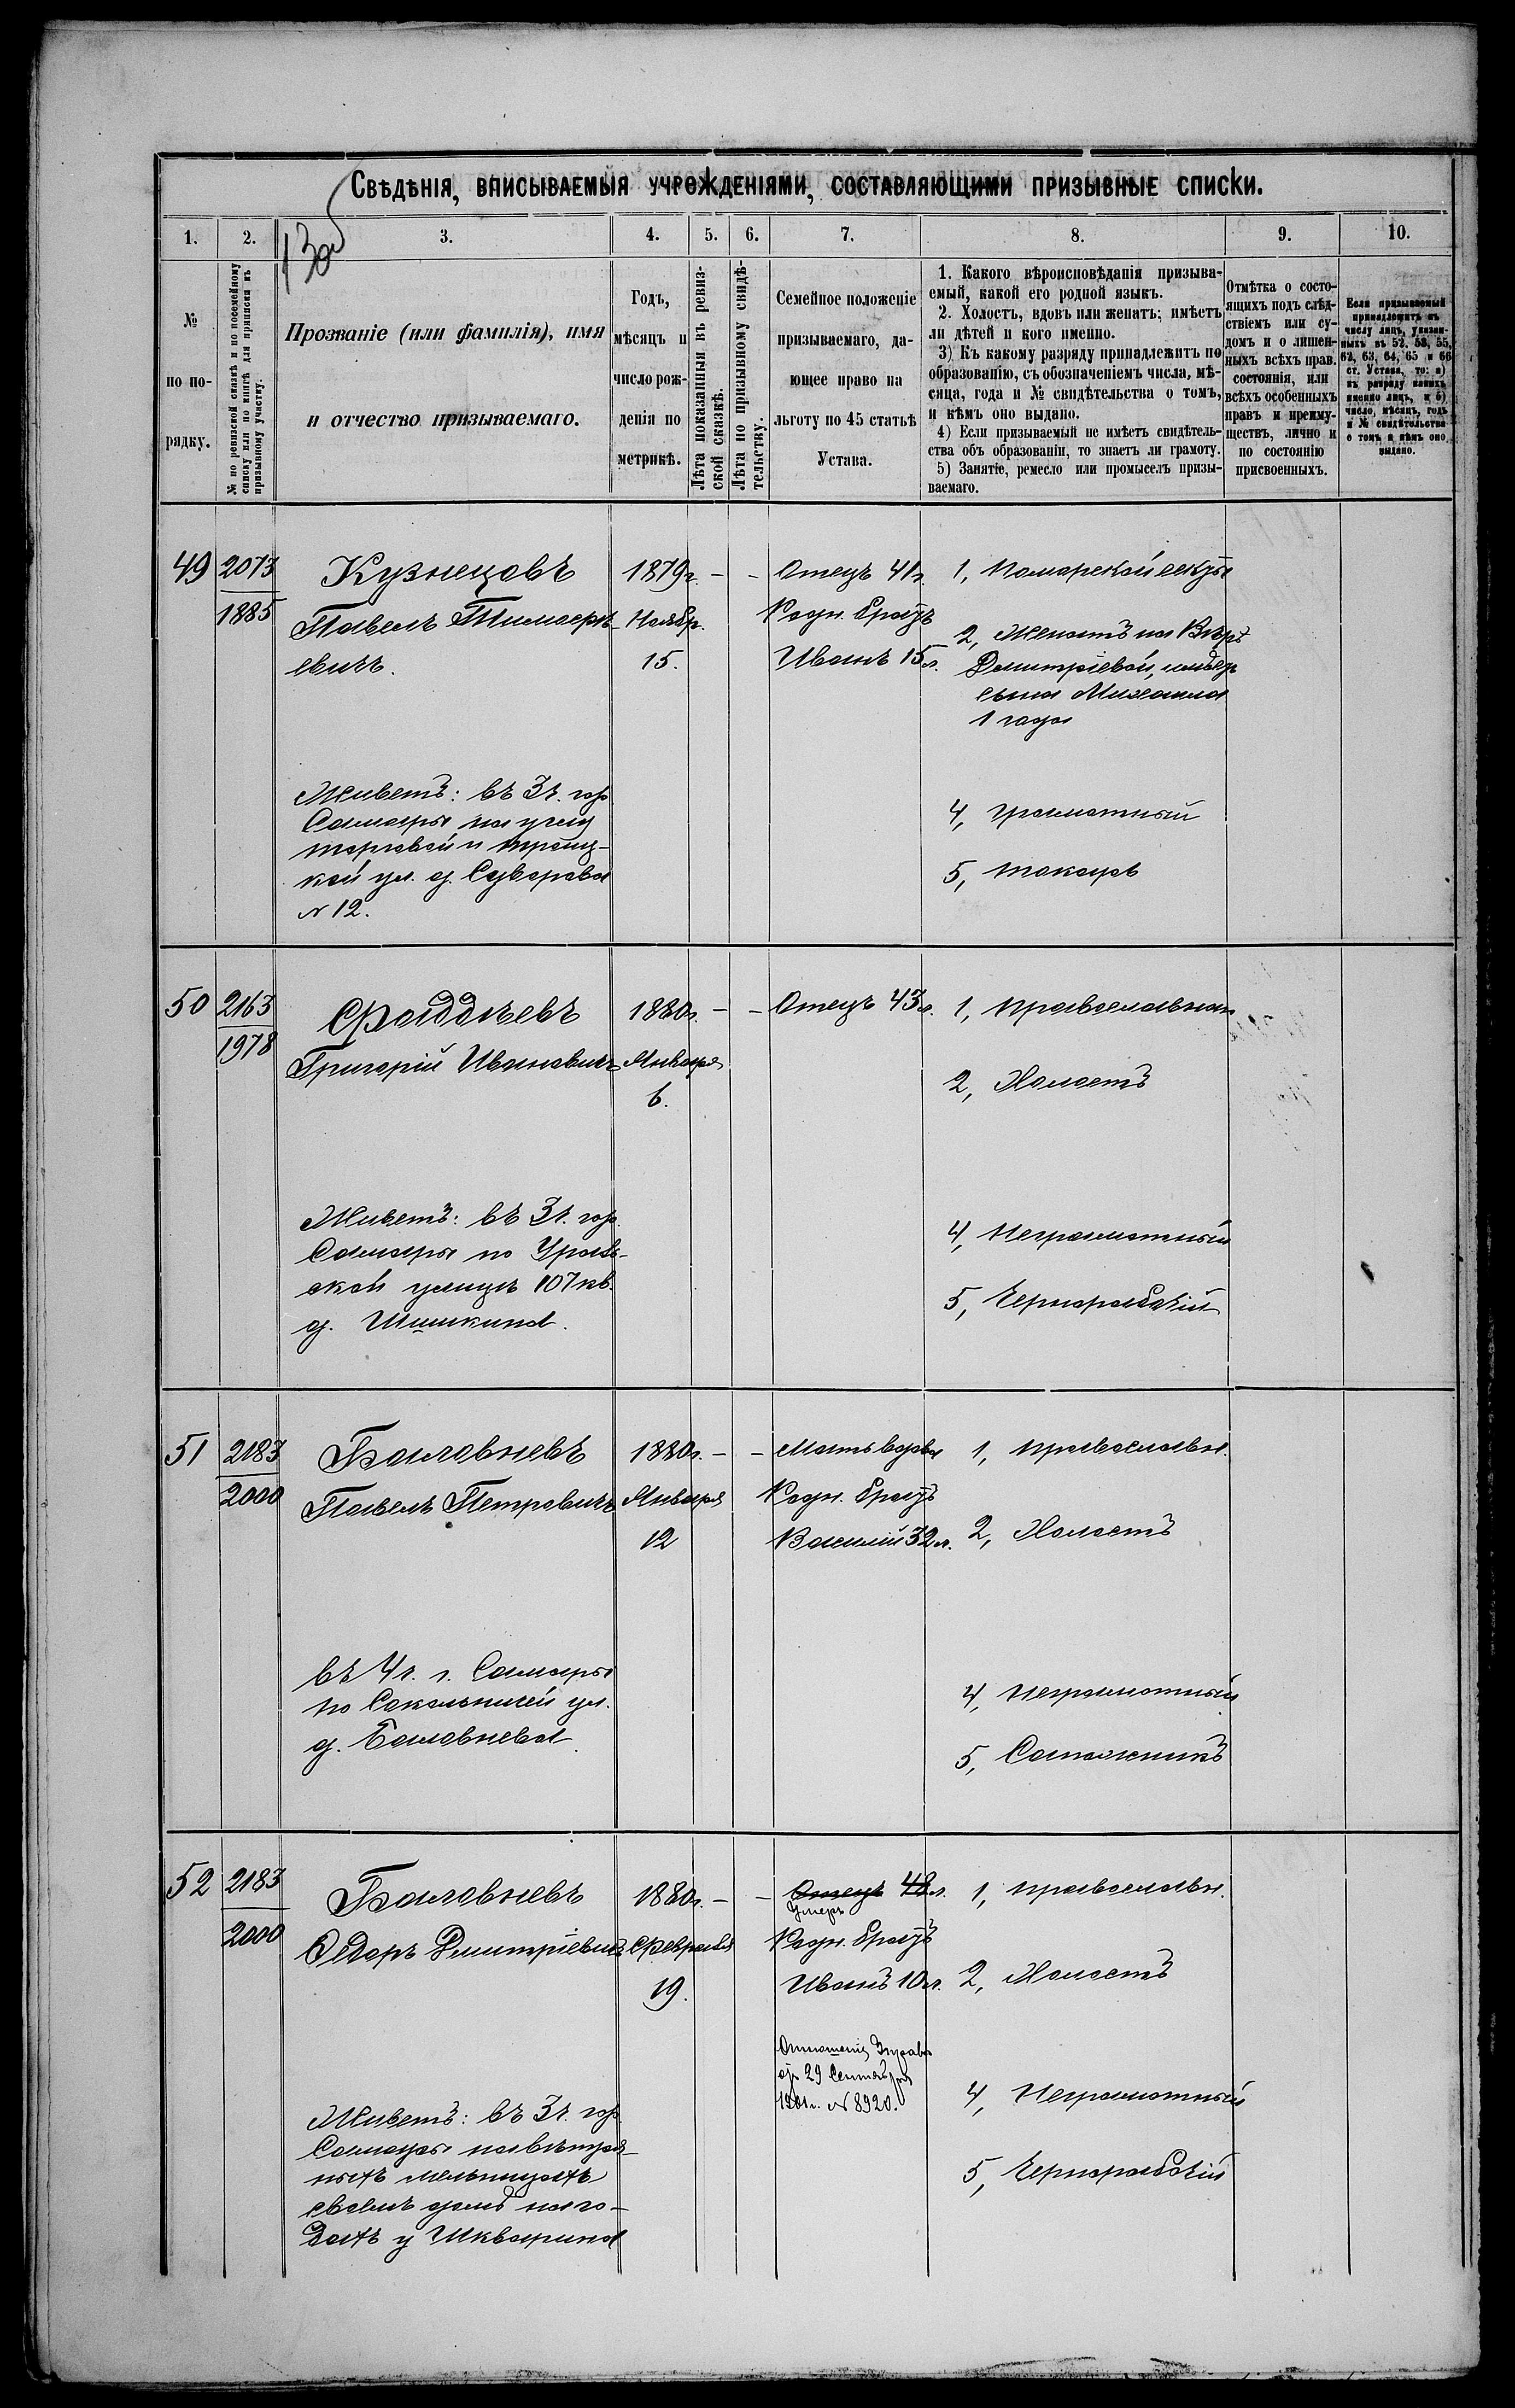 130
Свѣдѣнія, вписываемыя учрежденіями, составляющими призывные списки.
1. 2. 3. 4. 5. 6. 7. 8. 9. 10.
№
по по-
рядку.
№ по ревизской сказкѣ и по посемейному
списку или по книгѣ для приписки къ
призывному участку.
Прозваніе (или фамилія), имя
и отчество призываемаго.
Годъ,
мѣсяцъ и
число рож-
денія по
метрикѣ.
Лѣта показанныя въ ревиз-
ской сказкѣ.
Лѣта по призывному свидѣ-
тельству.
Семейное положеніе
призываемаго, да-
ющее право на
льготу по 45 статьѣ
Устава.
1. Какого вѣроисповѣданія призыва-
емый, какой его родной языкъ.
2. Холостъ, вдовъ или женатъ; имѣетъ
ли дѣтей и кого именно.
3) Къ какому разряду принадлежитъ по
образованію, съ обозначеніемъ числа, мѣ-
сяца, года и № свидѣтельства о томъ,
и кѣмъ оно выдано.
4) Если призываемый не имѣетъ свидѣтель-
ства объ образованіи, то знаетъ ли грамоту.
5) Занятіе, ремесло или промыселъ призы-
ваемаго.
Отмѣтка о состо-
ящихъ подъ слѣд-
ствіемъ или су-
домъ и о лишен-
ныхъ всѣхъ прав.
состоянія, или
всѣхъ особенныхъ
правъ и преиму-
ществъ, лично и
по состоянію
присвоенныхъ.
Если призываемый
принадлежитъ къ
числу лицъ, указан-
ныхъ въ 52, 53, 55,
62, 63, 64, 65 и 66
ст. Устава, то: а)
къ разряду какихъ
именно лицъ, и б)
число, мѣсяцъ, годъ
и № свидѣтельства
о томъ и кѣмъ оно
выдано.
49
2073
1885
Кузнецовъ
Павелъ Тимофе-
евичъ.
Живетъ: въ 3ч. гор.
Самары на углу
торговой и троиц-
кой ул. д. Суворова
№ 12.
1879г.
Ноябр.
15.
—
—
Отецъ 41г.
Родн. братъ
Иванъ 15л.
1, Поморской секты
2, Женатъ на Вѣрѣ
Дмитріевой, имѣетъ
сына Михаила
1 года
4, грамотный
5, токарь
50
2163
1978
Фаддѣевъ
Григорій Ивановичъ
Живетъ: въ 3ч. гор.
Самары по Ураль-
ской улицѣ 107 кв.
д. Шишкина.
1880г.
Января
6.
—
—
Отецъ 43л.
1, православнаго
2, Холостъ
4, Неграмотный
5, Чернорабочій
51
2183
2000
Баловневъ
Павелъ Петровичъ
въ 4ч. г. Самары
по Сокольничей ул.
д. Баловнева.
1880г.
Января
12
—
—
Мать вдова
Родн. братъ
Василій 32л.
1, православн.
2, Холостъ
4, Неграмотный
5, Сапожникъ
52
2183
2000
Баловневъ
Ѳедоръ Дмитріевичъ
Живетъ: въ 3ч. гор.
Самары на вѣтря-
ныхъ мельницахъ
своемъ домѣ на го-
дахъ у Шкварина
1880г.
Февраля
19.
—
—
Отецъ 48л.
Умеръ
Родн. братъ
Иванъ 10л.
Отношеніе Управы
отъ 29 Сентября
1901г. № 8920.
1, православн.
2, Холостъ
4, Неграмотный
5, Чернорабочій